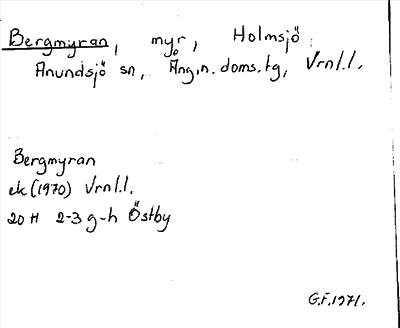 Bergmyran, myr, Holmsjö,
Anundsjö sn, Ång.n. doms.tg, Vrnl.l.
Bergmyran
ek (1970) Vrnl.l.
20 H 2-3 g-h Östby
G.F. 1971.